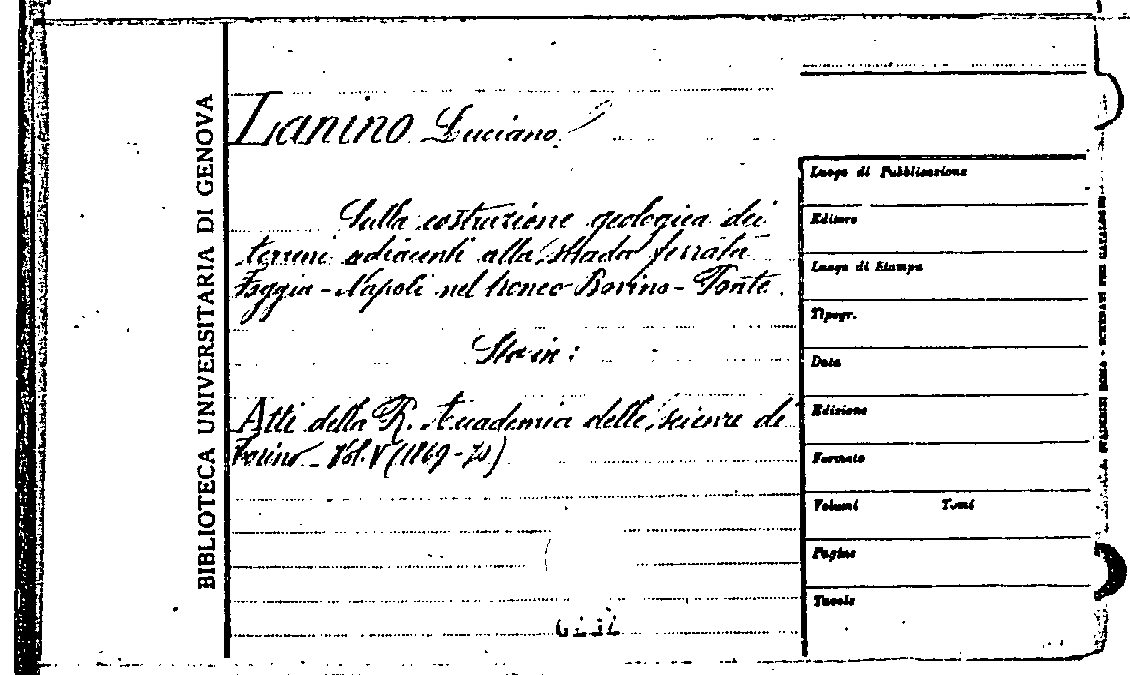 BIBLIOTECA UNIVERSITARIA DI GENOVA
Lanino Luciano
Sulla costruzione geologica dei
terreni adiacenti alla strada ferrata
Foggia-Napoli nel tronco Bovino-Ponte.
Sta in:
Atti della R. Accademia delle scienze di
Torino - Vol. V (1869-70)
Luogo di Pubblicazione
Editore
Luogo di Stampa
Tipogr.
Data
Edizione
Formato
Volumi Tomi
Pagine
Tavole